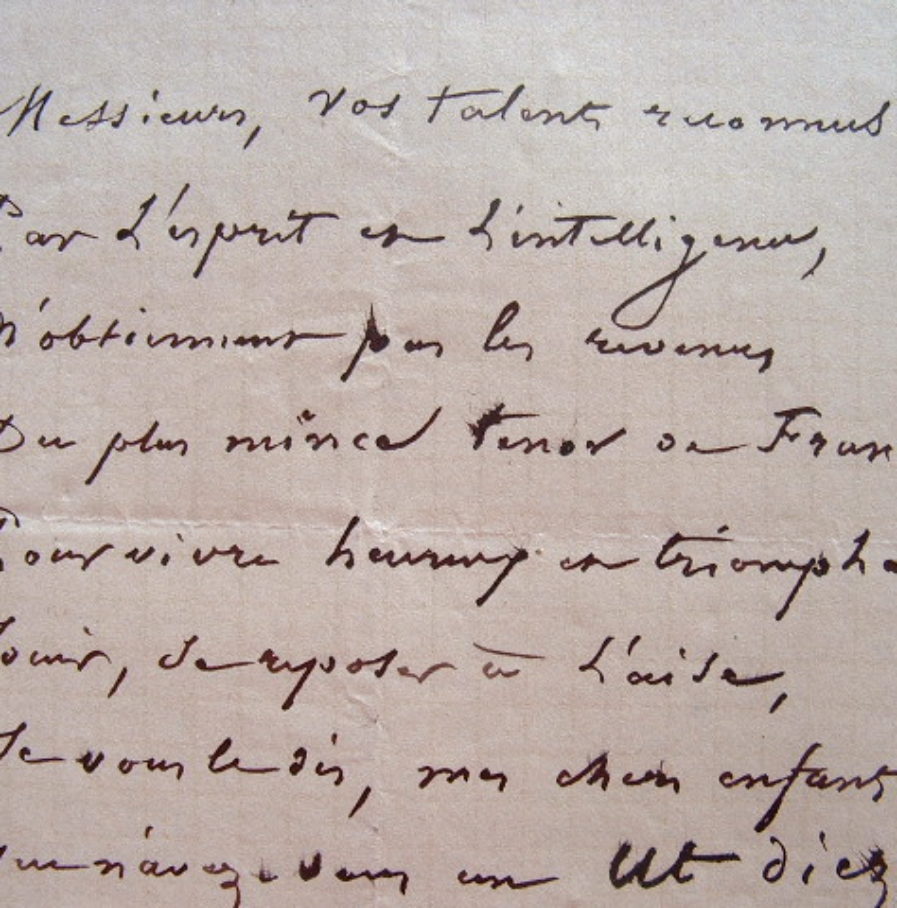 Messieurs, vos talents reconnus
Par L'esprit et L'intelligence,
N'obtiennent pas les revenus
Du plus mince tenor de Fran
Pour vivre heureux et triompha
Jouir, se reposer à L'aise,
Je vous le dis, mes chers enfants
Que n'avez-vous un Ut diez